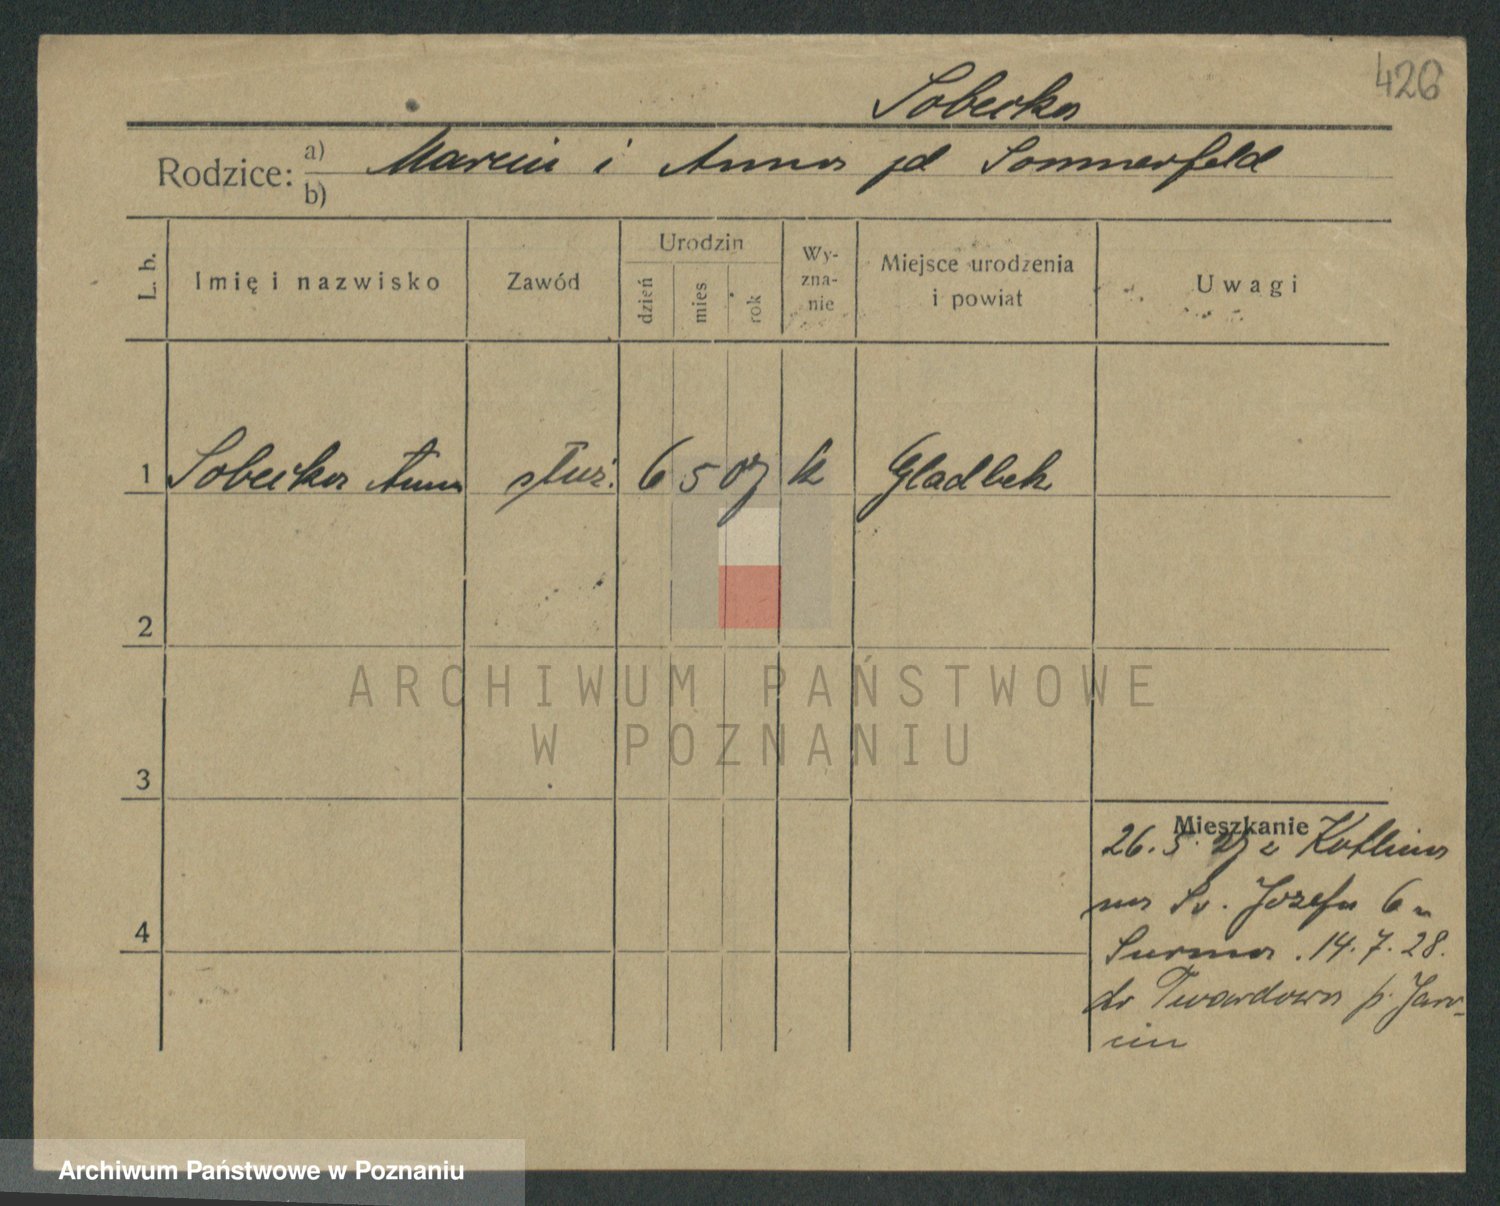 426
Sobecka
Rodzice: a) b) Marcin i Anna jd Sommerfeld
L. b. Imię i nazwisko Zawód Urodzin dzień mies rok Wy-zna-nie Miejsce urodzenia i powiat Uwagi
1 Sobecka Anna służ. 6 5 07 k Gladbek
2
ARCHIWUM PAŃSTWOWE
W POZNANIU
3
Mieszkanie
26. 5. 27 z Kotlina
na Św. Józefa 6
Surma. 14. 7. 28.
do Twardowa p. Jaro-
cin
4
Archiwum Państwowe w Poznaniu